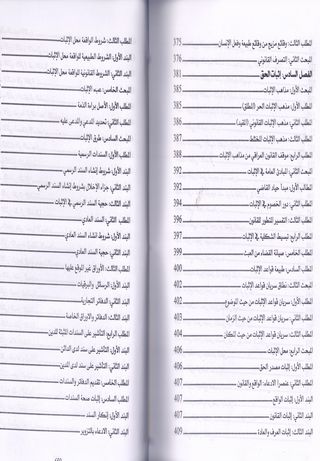 المطلب الثالث: وقائع مزيج من وقائع طبيعة وفعل الإنسان 375
المبحث الثاني: التصرف القانوني 376
الفصل السادس: إثبات الحق 381
المبحث الأول: مذاهب الإثبات 385
المطلب الأول: مذهب الإثبات الحر (المطلق) 385
المطلب الثاني: مذهب الإثبات القانوني (المقيد) 386
المطلب الثالث: مذهب الإثبات المختلط 387
المطلب الرابع: موقف القانون العراقي من مذاهب الإثبات 388
المبحث الثاني: المبادئ العامة في الإثبات 392
المطلب الأول: مبدأ حياد القاضي 392
المطلب الثاني: دور الخصوم في الإثبات 394
المطلب الثالث: التفسير المتطور للقانون 396
المطلب الرابع: تبسيط الشكلية في الإثبات 397
المطلب الخامس: صيانة القضاء من العبث 399
المطلب السادس: طبيعة قواعد الإثبات 400
المبحث الثالث: نطاق سريان قواعد الإثبات 402
المطلب الأول: سريان قواعد الإثبات من حيث الموضوع 402
المطلب الثاني: سريان قواعد الإثبات من حيث الزمان 403
المطلب الثالث: سريان قواعد الإثبات من حيث المكان 404
المبحث الرابع: محل الإثبات 406
المطلب الأول: إثبات مصدر الحق 406
المطلب الثاني: عنصرا الادعاء: الواقع والقانون 407
البند الأول: إثبات الواقع 407
البند الثاني: إثبات القانون 407
البند الثالث: إثبات العرف والعادة 409
المطلب الثالث: شروط الواقعة محل الإثبات
البند الأول: الشروط الطبيعية للواقعة محل الإثبات
البند الثاني: الشروط القانونية للواقعة محل الإثبات
المبحث الخامس: عبء الإثبات
المطلب الأول: الأصل براءة الذمة
المطلب الثاني: تحديد المدعي والمدعى عليه
المبحث السادس: طرق الإثبات
المطلب الأول: السندات الرسمية
البند الأول: شروط إنشاء السند الرسمي
البند الثاني: جزاء الإخلال بشروط إنشاء السند الرسمي
البند الثالث: حجية السند الرسمي في الإثبات
المطلب الثاني: السند العادي
البند الأول: شروط إنشاء السند العادي
البند الثاني: حجية السند العادي
المطلب الثالث: الأوراق غير الموقع عليها
البند الأول: الرسائل والبرقيات
البند الثاني: الدفاتر التجارية
البند الثالث: الدفاتر والأوراق الخاصة
المطلب الرابع: التأشير على السندات المثبتة للدين
البند الأول: التأشير على سند لدى الدائن
البند الثاني: التأشير على سند لدى المدين
المطلب الخامس: تقديم الدفاتر والسندات
المطلب السادس: إثبات صحة السندات
البند الأول: إنكار السند
البند الثاني: الادعاء بالتزوير